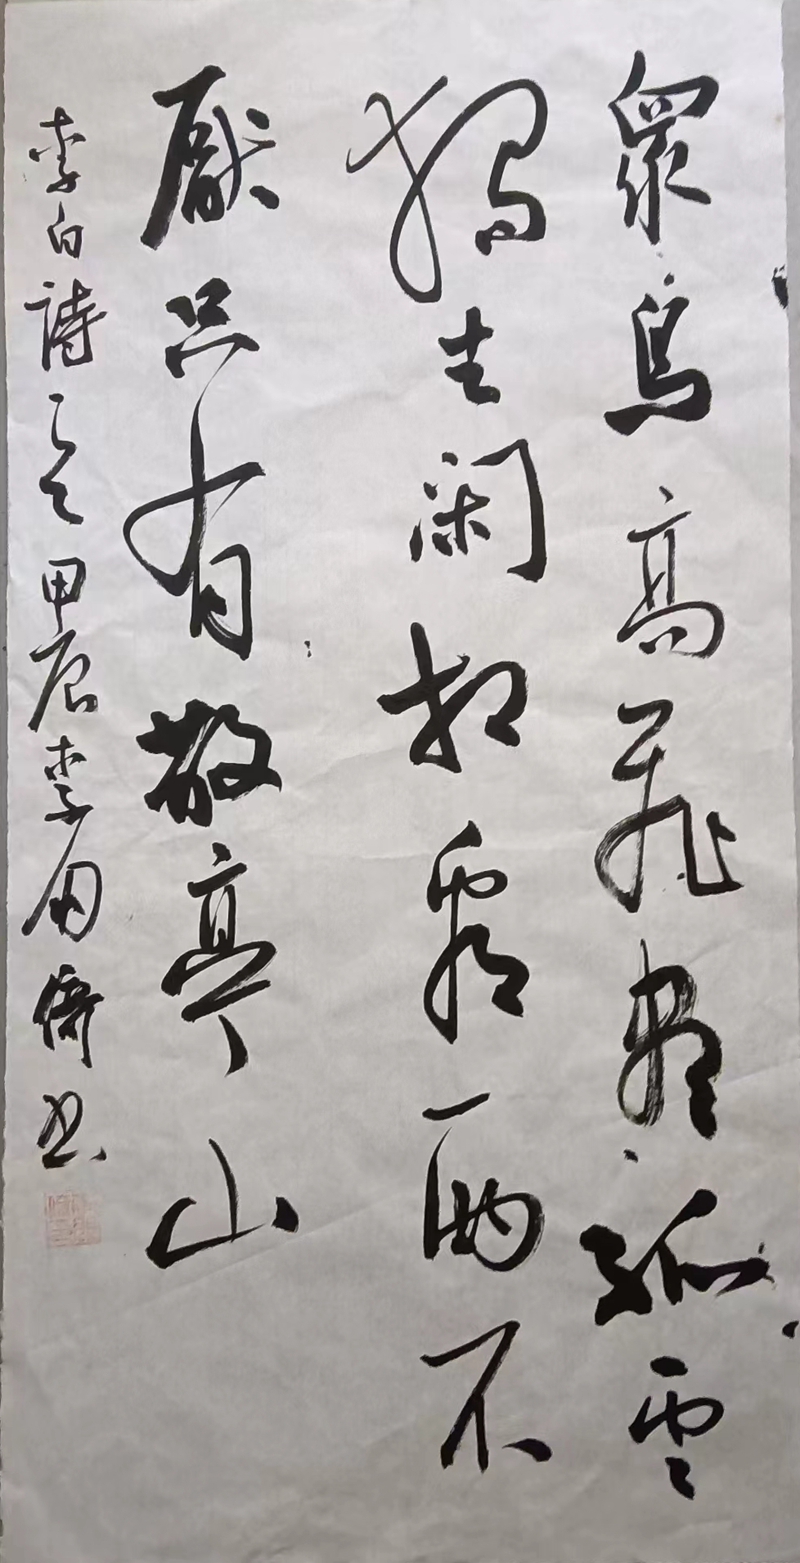 衆鳥高飛盡孤雲
獨去閑相看兩不
厭只有敬亭山
李白詩 甲辰李书